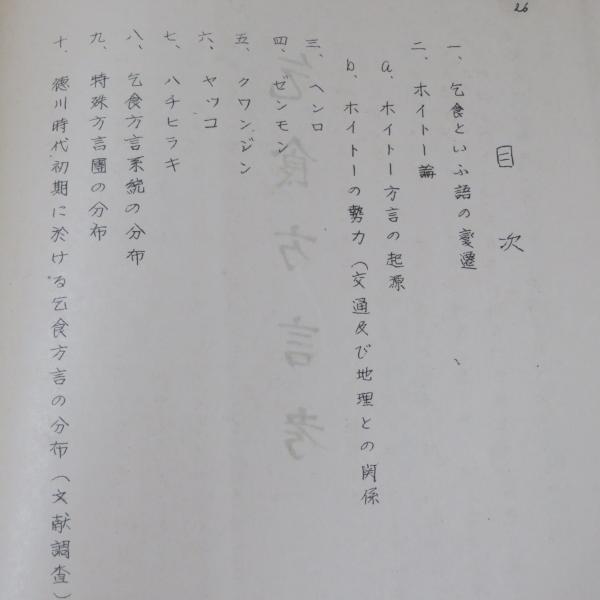 26
目次
一、乞食といふ語の変遷
二、ホイトー論
a、ホイトー方言の起源
b、ホイトーの勢力(交通及び地理との関係
三、ヘンロ
四、ゼンモン
五、クワンジン
六、ヤッコ
七、ハチヒラキ
八、乞食方言系統の分布
九、特殊方言團の分布
十、徳川時代初期に於ける乞食方言の分布(文献調査)
乞食方言考